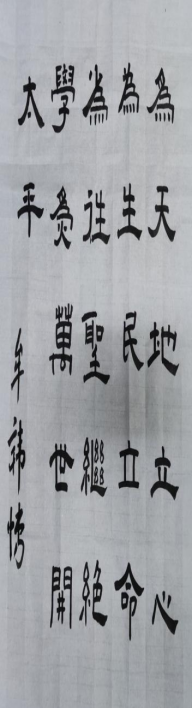 為天地立心
為生民立命
為往聖繼絕
學為萬世開
太平